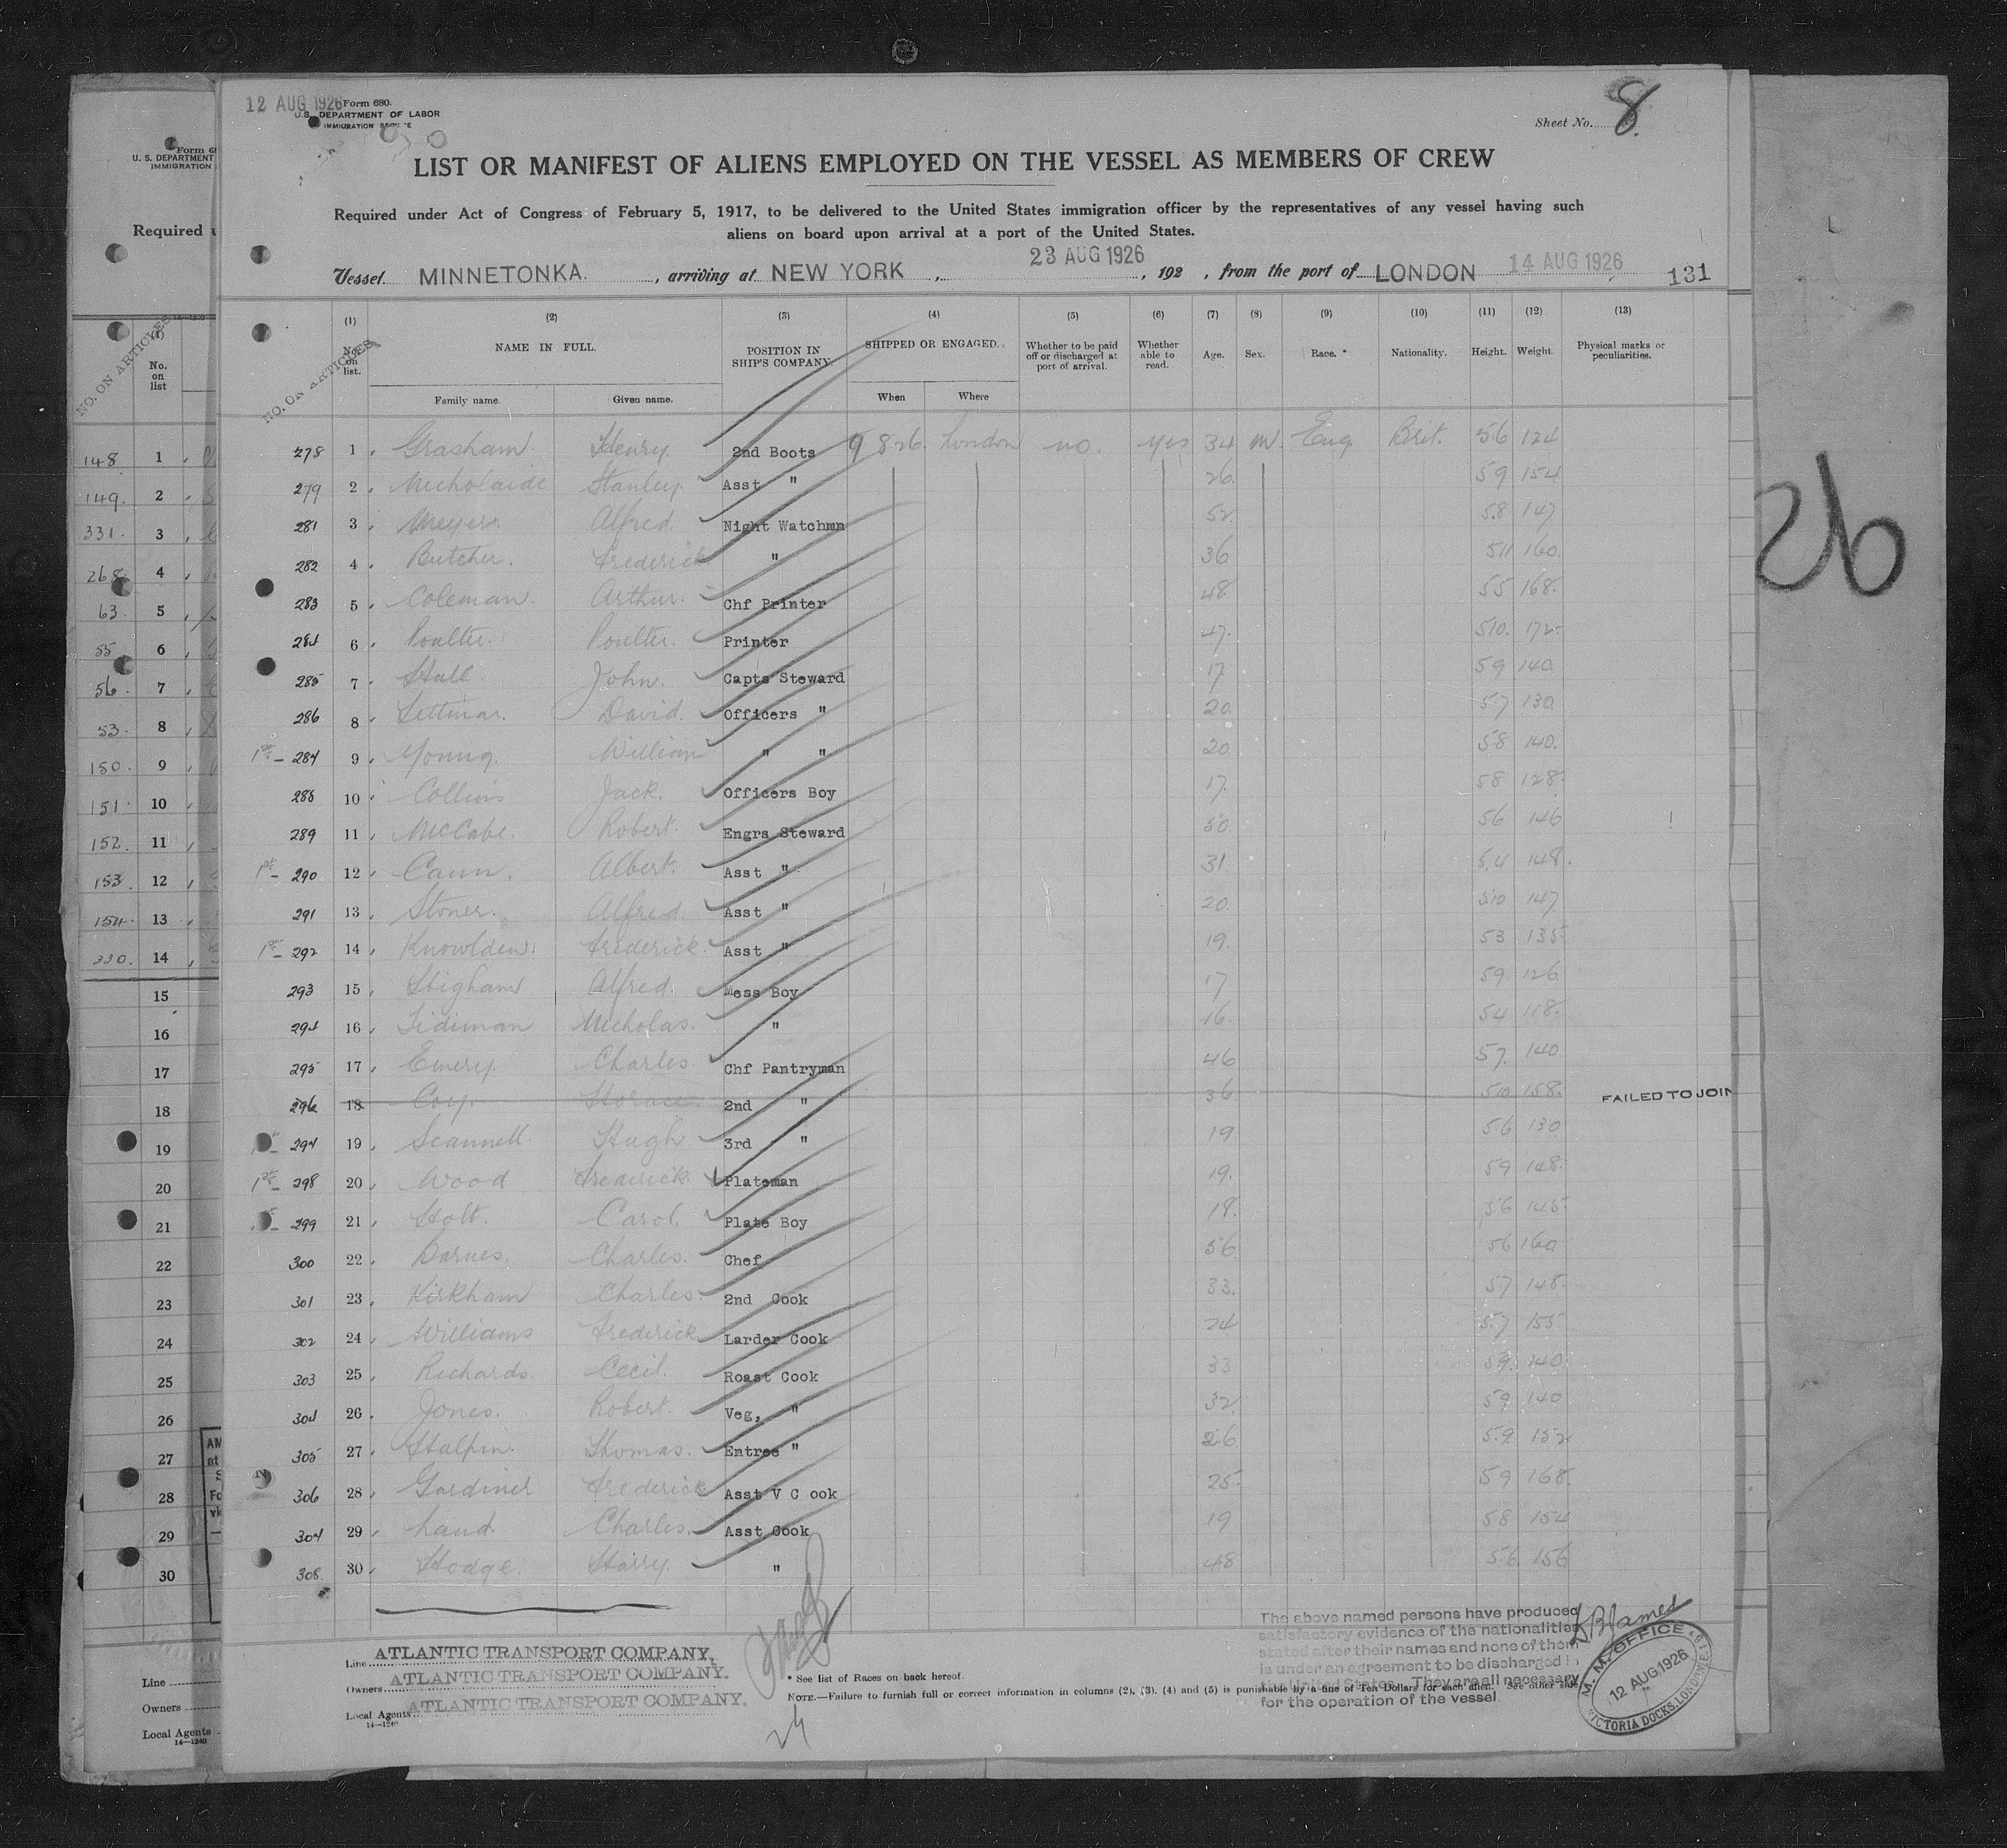 12 AUG 1926
Form 680.
U.S. DEPARTMENT OF LABOR
IMMIGRATION SERVICE
Sheet No. 8
LIST OR MANIFEST OF ALIENS EMPLOYED ON THE VESSEL AS MEMBERS OF CREW
Required under Act of Congress of February 5, 1917, to be delivered to the United States immigration officer by the representatives of any vessel having such
aliens on board upon arrival at a port of the United States.
Vessel MINNETONKA. , arriving at NEW YORK , 23 AUG 1926 , 192 , from the port of LONDON 14 AUG 1926 131
(1) (2) (3) (4) (5) (6) (7) (8) (9) (10) (11) (12) (13)
NO. ON ARTICLES No. on list. NAME IN FULL. Family name. Given name. POSITION IN SHIP'S COMPANY. SHIPPED OR ENGAGED. When Where Whether to be paid off or discharged at port of arrival. Whether able to read. Age. Sex. Race. * Nationality. Height. Weight. Physical marks or peculiarities.
278 1 Grasham Henry 2nd Boots 9 8 26. London no. yes 34 m. Eng Brit. 56 124
279 2 Stanley. Asst " 26 59 154
281 3 Meyers Alfred Night Watchmn 52 58 147
282 4 Butcher. Frederick " 36 511 160
283 5 Coleman. Arthur. Chf Printer 48 55 168
284 6 Poulter. Poulter. Printer 47. 510. 172
285 7 Hall John. Capts Steward 17 59 140
286 8 David. Officers " 20 57 130
1st - 287 9 Young. William " " 20 58 140
288 10 Collins Jack. Officers Boy 17. 58 128
289 11 McCabe. Robert. Engrs Steward 50 56 146
1st - 290 12 Cann. Albert. Asst " 31 5.4 148.
291 13 Stoner. Alfred Asst " 20. 510 147
1st - 292 14 Knowlden Frederick. Asst " 19. 53 135
293 15 Alfred. Mess Boy 17 59 126
294 16 Tidiman Nicholas. " 16. 54 118.
295 17 Emery. Charles Chf Pantryman 46 57. 140
296 18 Coy. Horace. 2nd " 36 510 158. FAILED TO JOIN
297 19 Scannell Hugh 3rd " 19 56 130
1st - 298 20 Wood Frederick. Plateman 19. 59 148.
299 21 Holt. Carol. Plate Boy 18. 56 145
300 22 Barnes. Charles. Chef 56 56 160
301 23 Kirkham Charles. 2nd Cook 33. 57 148
302 24 Williams Frederick Larder Cook 24 57 155
303 25 Richards. Cecil. Roast Cook 33 59. 140
304 26 Jones. Robert. Veg, " 32. 59 140
305 27 Halpin. Thomas. Entree " 26 59 152
306 28 Gardiner Frederick Asst V C ook 25 59 168
307 29 Land Charles. Asst Cook 19 58 154
308. 30 Hodge Harry. " 48 56. 156
Line ATLANTIC TRANSPORT COMPANY.
Owners ATLANTIC TRANSPORT COMPANY.
Local Agents ATLANTIC TRANSPORT COMPANY.
14—1240
24
* See list of Races on back hereof.
NOTE.—Failure to furnish full or correct information in columns (2), (3), (4) and (5) is punishable by a fine of Ten Dollars for each alien. See other side.
The above named persons have produced
satisfactory evidence of the nationalities
stated after their names and none of them
is under an agreement to be discharged in
the United States. They are all necessary
for the operation of the vessel.
D. B. James
M. M. OFFICE
12 AUG 1926
VICTORIA DOCKS, LONDON, E.16
26
Form 68
U. S. DEPARTMENT
IMMIGRATION
Required
NO. ON ARTICLES
No. on list
148 1
149. 2
331. 3
268 4
63. 5
55 6
56. 7
53. 8
150. 9
151. 10
152. 11
153. 12
154. 13
330. 14
15
16
17
18
19
20
21
22
23
24
25
26
27
28
29
30
Line
Owners
Local Agents
14—1240